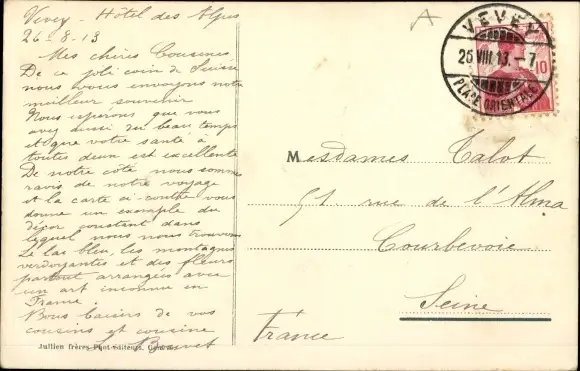 Vevey - Hôtel des Alpes
26-8-13
Mes chères Cousines
De ce joli coin de Suisse
nous vous envoyons notre
meilleur souvenir
Nous espérons que vous
avez aussi du beau temps
et que votre santé à
toutes deux est excellente
De notre côté nous sommes
ravis de notre voyage
et la carte ci-contre vous
donne un exemple du
décor constant dans
lequel nous nous trouvons
Le lac bleu, les montagnes
verdoyantes et des fleurs
partout arrangées avec
un art inconnu en
France.
Bons baisers de vos
cousins et cousine
Jullien frères Phot-éditeurs, Genève
VEVEY
26 VIII 13. - 7
PLACE ORIENTALE
10
Mesdames Talot
51. rue de l'Alma
Courbevoie
Seine
France